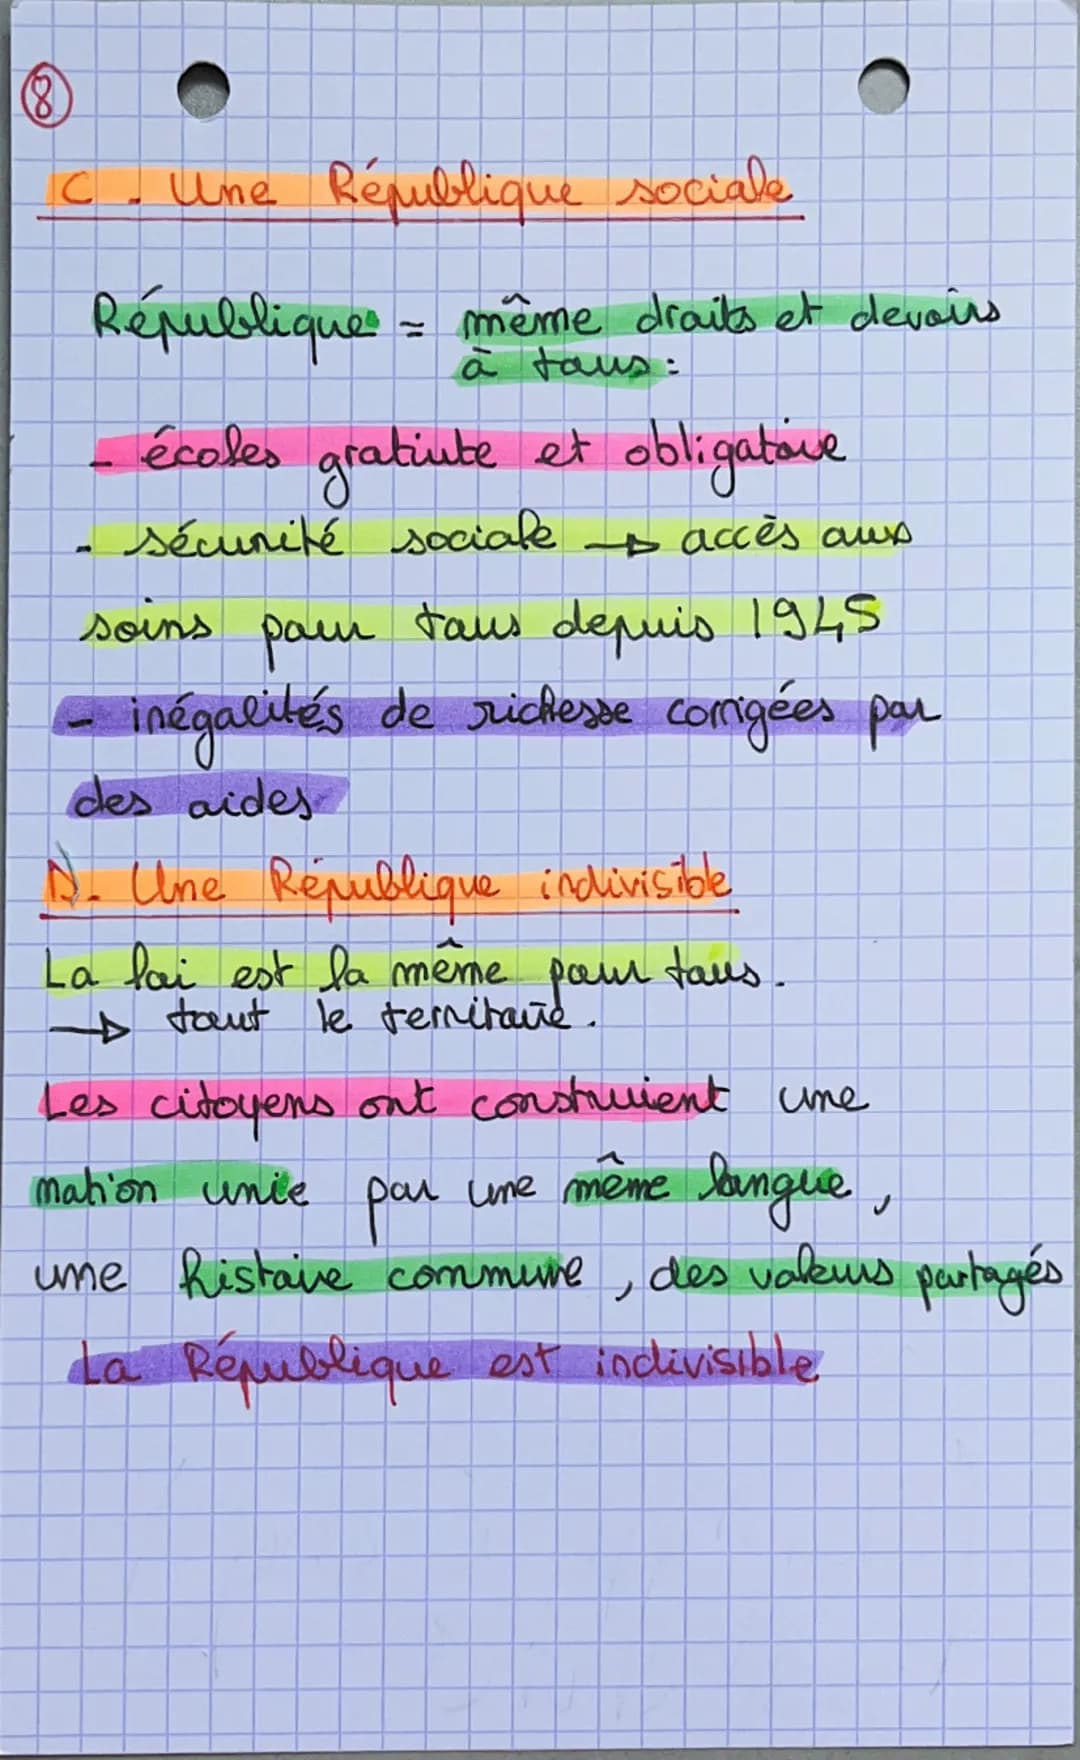 8
C. Une République sociale
République = même draits et devoirs
à tous :
- écoles gratiute et obligatoire
- sécurité sociale → accès aux
soins pour tous depuis 1945
- inégalités de richesse corrigées par
des aides
D. Une République indivisible
La loi est la même pour tous.
→ tout le territoire.
Les citoyens ont construient une
nation unie par une même langue,
une histoire commune, des valeurs partagés
La République est indivisible